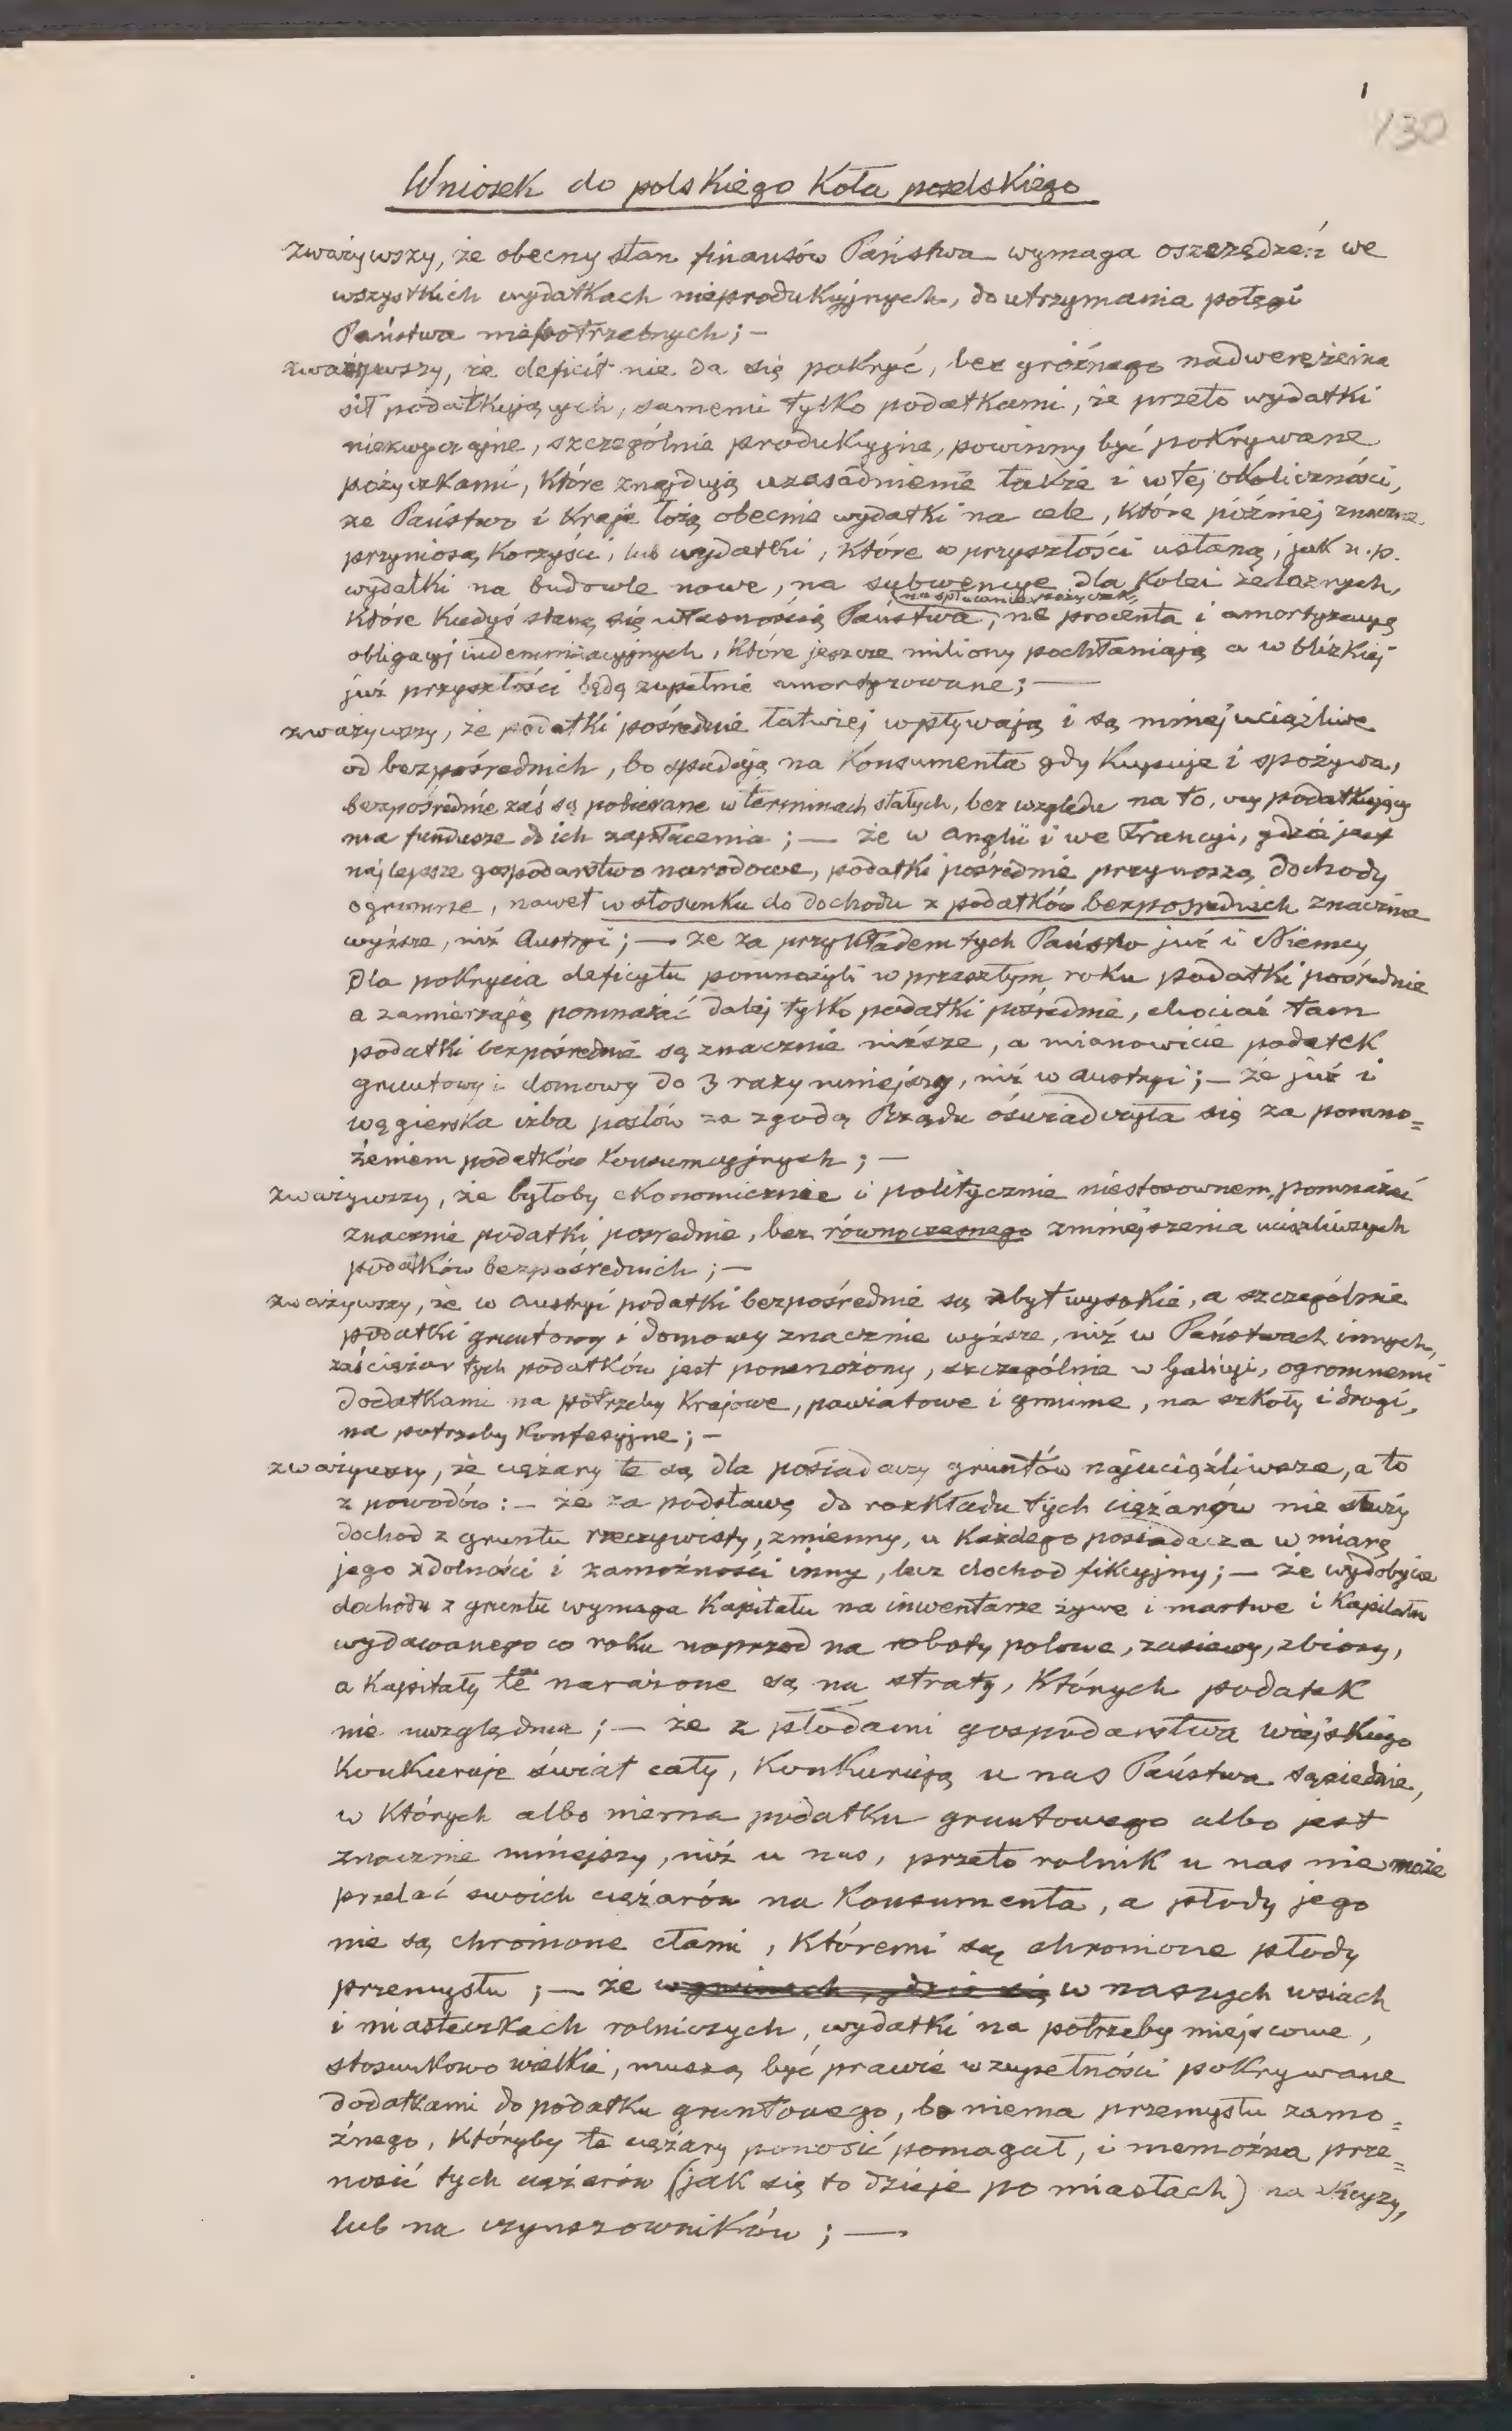 1
130
Wniosek do polskiego Koła poselskiego
zważywszy, że obecny stan finansów Państwa wymaga oszczędzeń we
wszystkich wydatkach nieprodukcyjnych, do utrzymania potęgi
Państwa niepotrzebnych; —
zważywszy, że deficit nie da się pokryć, bez groźnego nadwerężenia
sił podatkujących, samemi tylko podatkami, że przeto wydatki
niezwyczajne, szczególnie produkcyjne, powinny być pokrywane
pożyczkami, które znajdują uzasadnienie także i w tej okoliczności,
że Państwo i Kraje łożą obecnie wydatki na cele, które później znaczne
przyniosą korzyści, lub wydatki, które w przyszłości ustaną, jak n.p.
wydatki na budowle nowe, na subwencye dla Kolei żelaznych,
na spłacanie pożyczek,
które kiedyś staną się własnością Państwa, na procenta i amortyzacyę
obligacyj indemnizacyjnych, które jeszcze miliony pochłaniają a w blizkiej
już przyszłości będą zupełnie amortyzowane; —
zważywszy, że podatki pośrednie łatwiej wpływają i są mniej uciążliwe
od bezpośrednich, bo spadają na Konsumenta gdy Kupuje i spożywa,
bezpośrednie zaś są pobierane w terminach stałych, bez względu na to, czy podatkujący
ma fundusze do ich zapłacenia; — że w Anglii i we Francyi, gdzie jest
najlepsze gospodarstwo narodowe, podatki pośrednie przynoszą dochody
ogromne, nawet w stosunku do dochodu z podatków bezpośrednich znacznie
wyższe, niż Austryi; — że za przykładem tych Państw już i Niemcy
dla pokrycia deficytu pomnożyli w przeszłym roku podatki pośrednie
a zamierzają pomnażać dalej tylko podatki pośrednie, chociaż tam
podatki bezpośrednie są znacznie niższe, a mianowicie podatek
gruntowy i domowy do 3 razy mniejszy, niż w Austryi; — że już i
węgierska izba posłów za zgodą Rządu oświadczyła się za pomno=
żeniem podatków konsumcyjnych; —
zważywszy, że byłoby ekonomicznie i politycznie niestosownem, pomnażać
znacznie podatki pośrednie, bez równoczesnego zmniejszenia uciążliwszych
podatków bezpośrednich; —
zważywszy, że w Austryi podatki bezpośrednie są zbyt wysokie, a szczególnie
podatki gruntowy i domowy znacznie wyższe, niż w Państwach innych,
zaś ciężar tych podatków jest pomnożony, szczególnie w Galicyi, ogromnemi
dodatkami na potrzeby Krajowe, powiatowe i gminne, na szkoły i drogi,
na potrzeby Konfesyjne; —
zważywszy, że ciężary te są dla posiadaczy gruntów najuciążliwsze, a to
z powodów: — że za podstawę do rozkładu tych ciężarów nie służy
dochod z gruntu rzeczywisty, zmienny, u Każdego posiadacza w miarę
jego zdolności i zamożności inny, lecz dochod fikcyjny; — że wydobycie
dochodu z gruntu wymaga Kapitału na inwentarze żywe i martwe i Kapitału
wydawanego co roku naprzod na roboty polowe, zasiewy, zbiory,
a Kapitały te narażone są na straty, których podatek
nie uwzględnia; — że z płodami gospodarstwa wiejskiego
Konkuruje świat cały, Konkurują u nas Państwa sąsiednie,
w których albo niema podatku gruntowego albo jest
znacznie mniejszy, niż u nas, przeto rolnik u nas nie może
przelać swoich ciężarów na Konsumenta, a płody jego
nie są chronione cłami, któremi są chronione płody
przemysłu; — że w gminach, gdzie się w naszych wsiach
i miasteczkach rolniczych, wydatki na potrzeby miejscowe,
stosunkowo wielkie, muszą być prawie w zupełności pokrywane
dodatkami do podatku gruntowego, bo niema przemysłu zamo=
żnego, któryby te ciężary ponosić pomagał, i niemożna prze=
nosić tych ciężarów (jak się to dzieje po miastach) na
lub na czynszowników; —